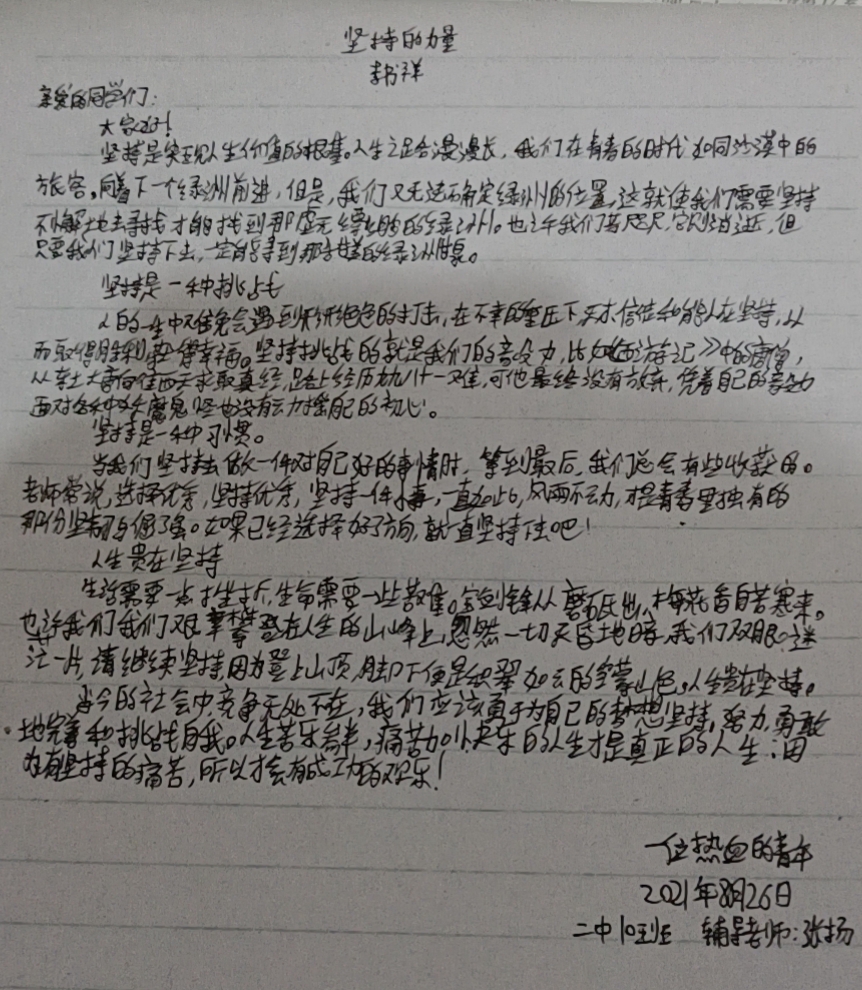 坚持的力量
李书祥
亲爱的同学们：
大家好！
坚持是实现人生价值的根基。人生之路漫漫长，我们在青春的时代如同沙漠中的
旅客，向着下一个绿洲前进，但是，我们又无法确定绿洲的位置，这就使我们需要坚持
不懈地去寻找才能找到那虚无缥缈的绿洲。也许我们若咫尺，它则消逝，但
只要我们坚持下去，一定能寻到那的绿洲。
坚持是一种挑战
人的一生中难免会遇到形形色色的打击，在不幸的重压下，只求信任和能人在坚持，从
而取得胜利，获得幸福。坚持挑战的就是我们的意志力，比如《西游记》中的唐僧，
从东土大唐向往西天求取真经，路上经历九九八十一难，可他最终没有放弃，凭着自己的意志力
面对各种妖魔鬼怪也没有动摇自己的初心。
坚持是一种习惯。
当我们坚持去做一件对自己好的事情时，等到最后，我们总会有些收获的。
老师常说，选择优秀，坚持优秀，坚持一件事，一直如此，风雨不动，才是青春里独有的
那份坚韧与倔强。如果已经选择好了方向，就一直坚持住吧！
人生贵在坚持
生活需要一点挫折，生命需要一些苦难。宝剑锋从磨砺出，梅花香自苦寒来。
也许我们我们艰辛攀登在人生的山峰上，忽然一切天昏地暗，我们双眼迷
茫一片，请继续坚持，因为登上山顶，脚下便是织翠如云的空蒙山色，人生贵在坚持。
当今的社会中，竞争无处不在，我们应该勇于为自己的梦想坚持，努力，勇敢
地完善和挑战自我。人生苦乐参半，痛苦加快乐的人生才是真正的人生；因
为有坚持的痛苦，所以才会有成功的欢乐！
一位热血的青年
2021年8月26日
二中 班 辅导老师：张扬